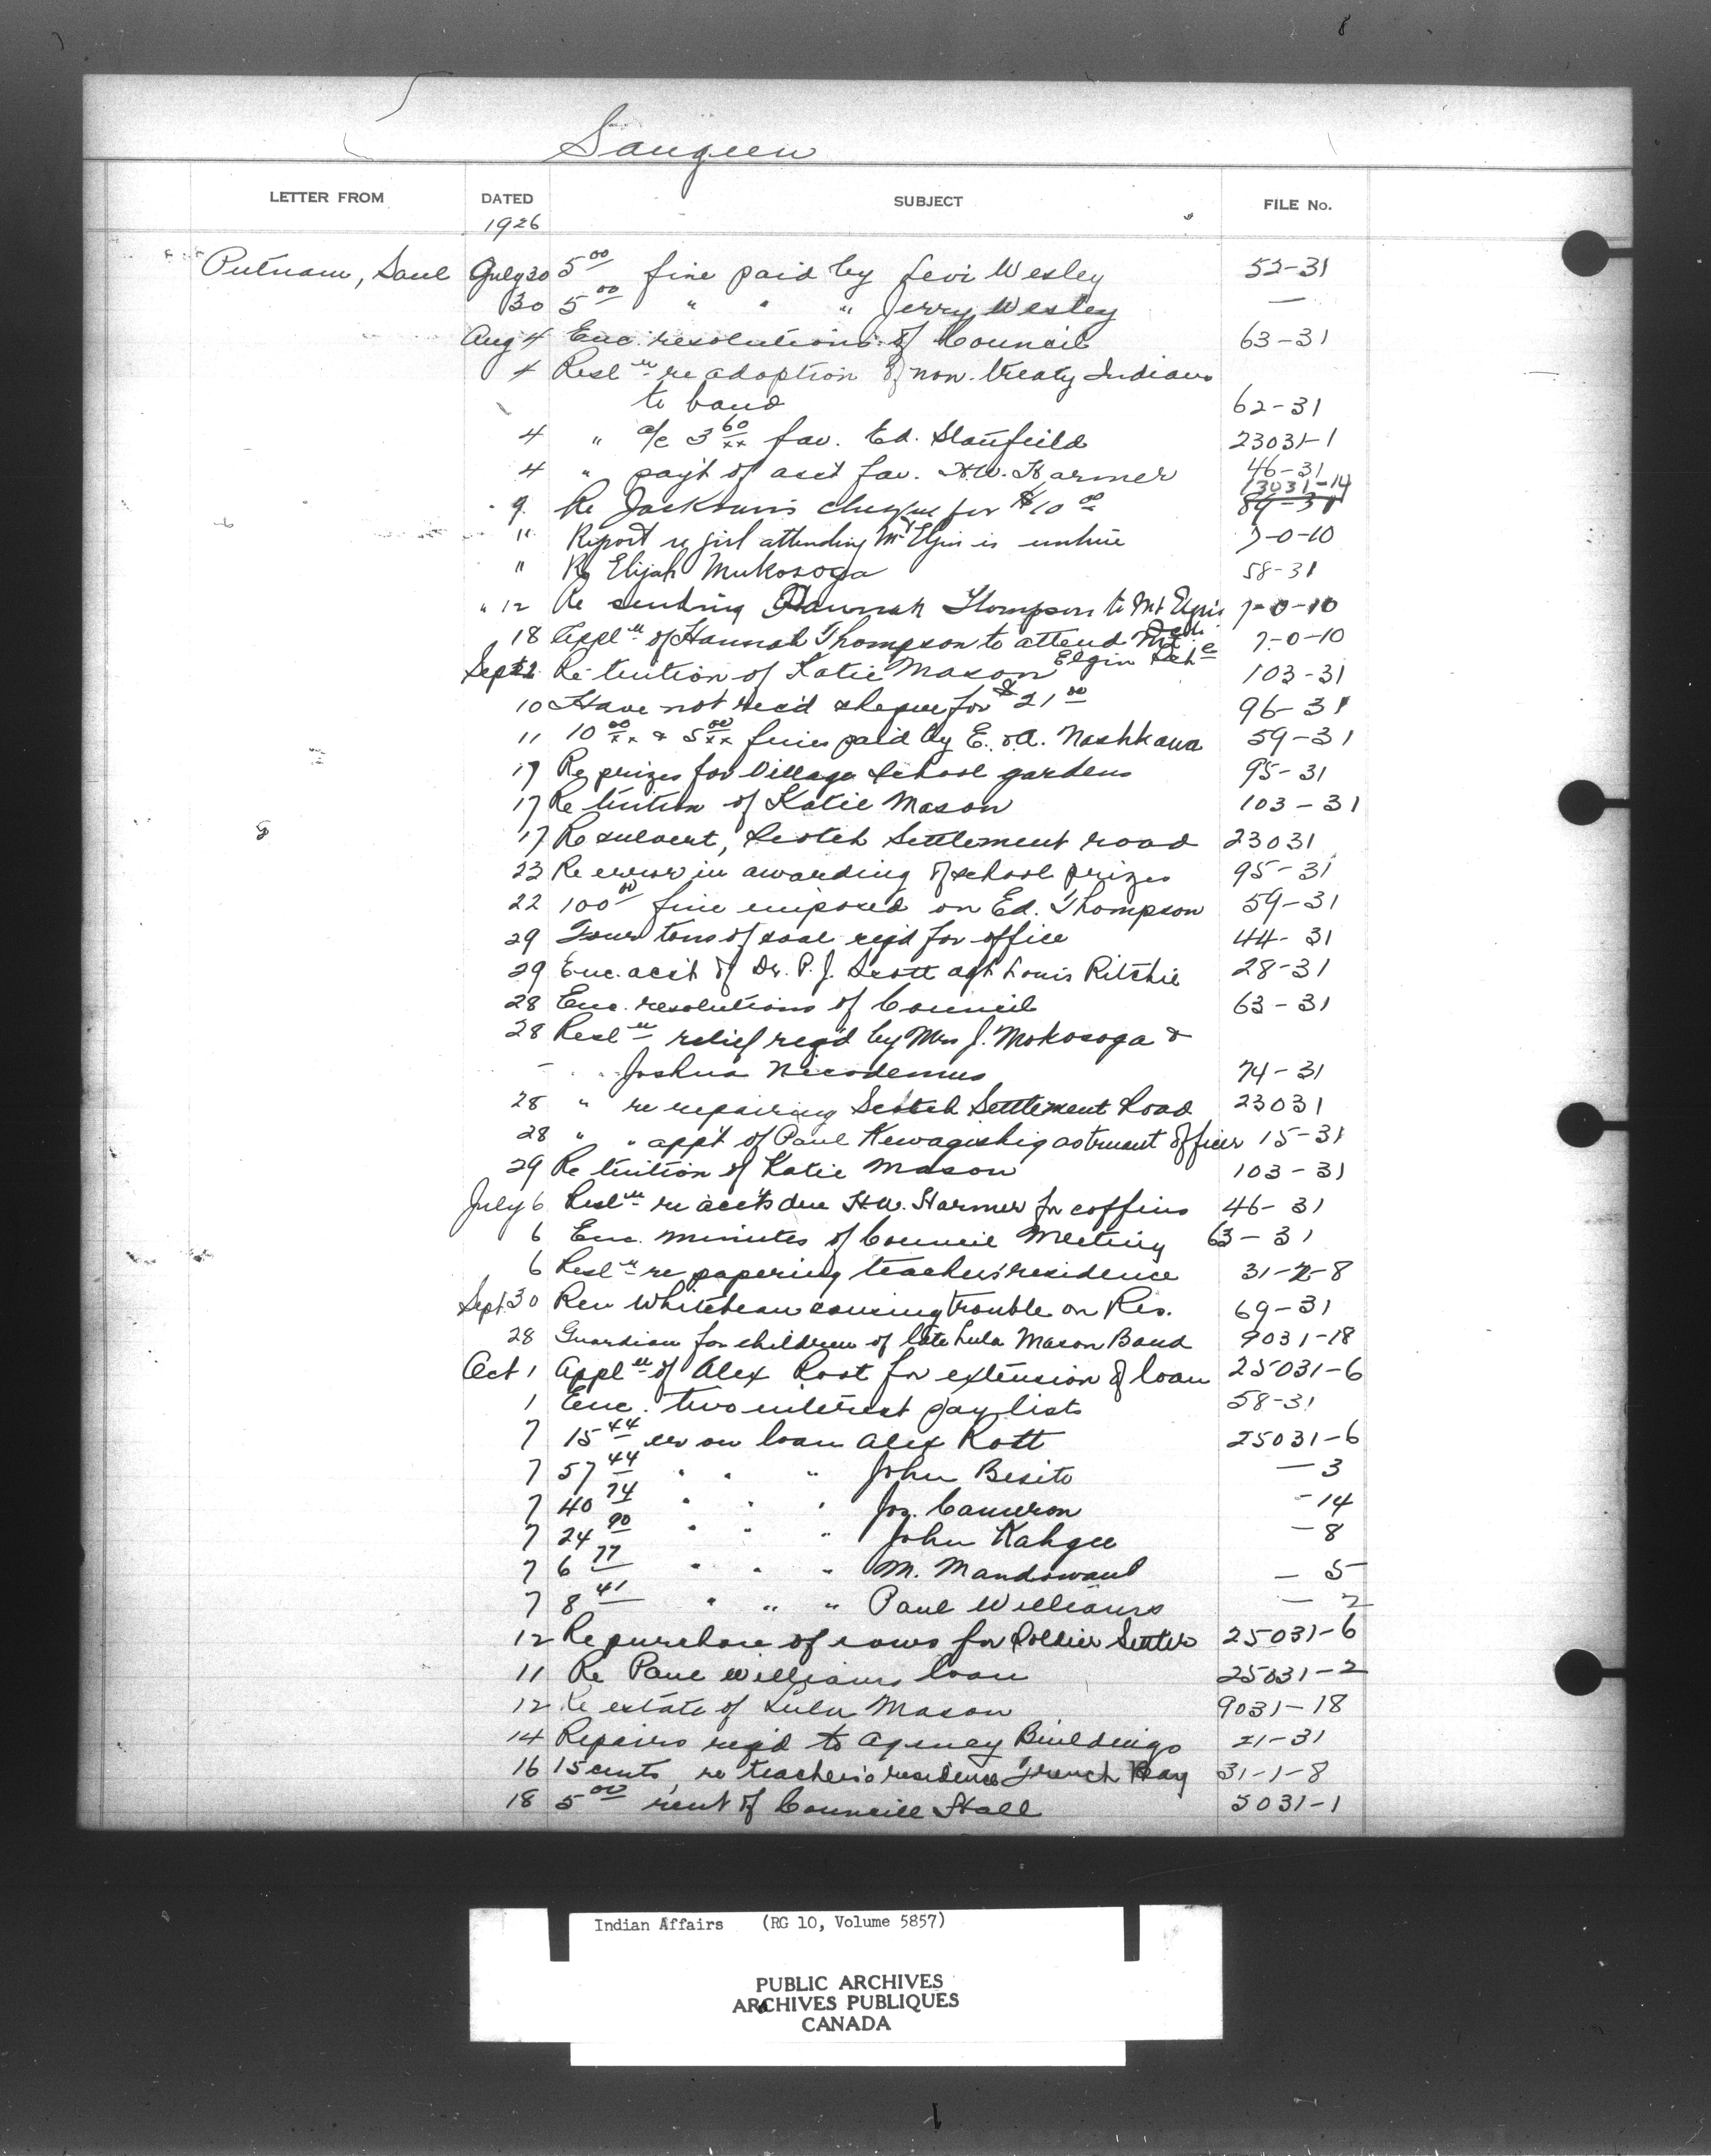 Saugeen
LETTER FROM DATED SUBJECT FILE No.
1926
Putnam, Saul July 30 5 00 fine paid by Levi Wesley 52-31
30 5 00 " " " Jerry Wesley —
Aug 4 Enc. resolutions of Council 63-31
4 Resl re adoption of non-treaty Indians
to band 62-31
4 " a/c 3 60 xx fav. Ed. Stanfeild 23031-1
4 " pay't of acc't fav. H.W. Harmer 46-31
13031-14
9 Re Jackson's cheque for $10 00 89-31
" Report re girl attending Mt Elgin is untrue 7-0-10
" Re Elijah Mukosoga 58-31
" 12 Re sending Hannah Thompson to Mt Elgin 7-0-10
18 Appl'n of Hannah Thompson to attend Mt 7-0-10
Elgin
Sept Re tuition of Katie Mason 103-31
10 Have not rec'd cheque for $21 00 96-31
11 10 00 xx & 5 00 xx fines paid by E. & A. Nashkawa 59-31
17 Re prizes for Village School gardens 95-31
17 Re tuition of Katie Mason 103-31
17 Re culvert, Scotch Settlement road 23031
23 Re error in awarding of school prizes 95-31
22 100 00 fine imposed on Ed. Thompson 59-31
29 Four tons of coal req'd for office 44-31
29 Enc. acc't of Dr. P. J. Scott ag't Louis Ritchie 28-31
28 Enc. resolutions of Council 63-31
28 Resl'n relief req'd by Mrs J. Mokosoga &
Joshua Nicodemus 74-31
28 " re repairing Scotch Settlement Road 23031
28 " " app't of Paul Kewagoshig as truant officer 15-31
29 Re tuition of Katie Mason 103-31
July 6 Resl'n re acc'ts due H.W. Harmer for coffins 46-31
6 Enc. minutes of Council Meeting 63-31
6 Resl'n re papering teacher's residence 31-2-8
Sept. 30 Rev Whitebean causing trouble on Res. 69-31
28 Guardian for children of late Lula Mason Band 9031-18
Oct 1 Appl'n of Alex Root for extension of loan 25031-6
1 Enc. two interest pay lists 58-31
7 15 44 int on loan Alex Rott 25031-6
7 57 44 " " " John Besito —3
7 40 74 " " " Jos. Cameron -14
7 24 90 " " " John Kahgee —8
7 6 77 " " " M. Mandowaub — 5
7 8 41 " " " Paul Williams — 2
12 Re purchase of cows for Soldier Settler 25031-6
11 Re Paul Williams loan 25031-2
12 Re estate of Lulu Mason 9031-18
14 Repairs req'd to Agency Buildings 21-31
16 15 cents, re teacher's residence French Bay 31-1-8
18 5 00 rent of Councill Hall 5031-1
Indian Affairs (RG 10, Volume 5857)
PUBLIC ARCHIVES
ARCHIVES PUBLIQUES
CANADA